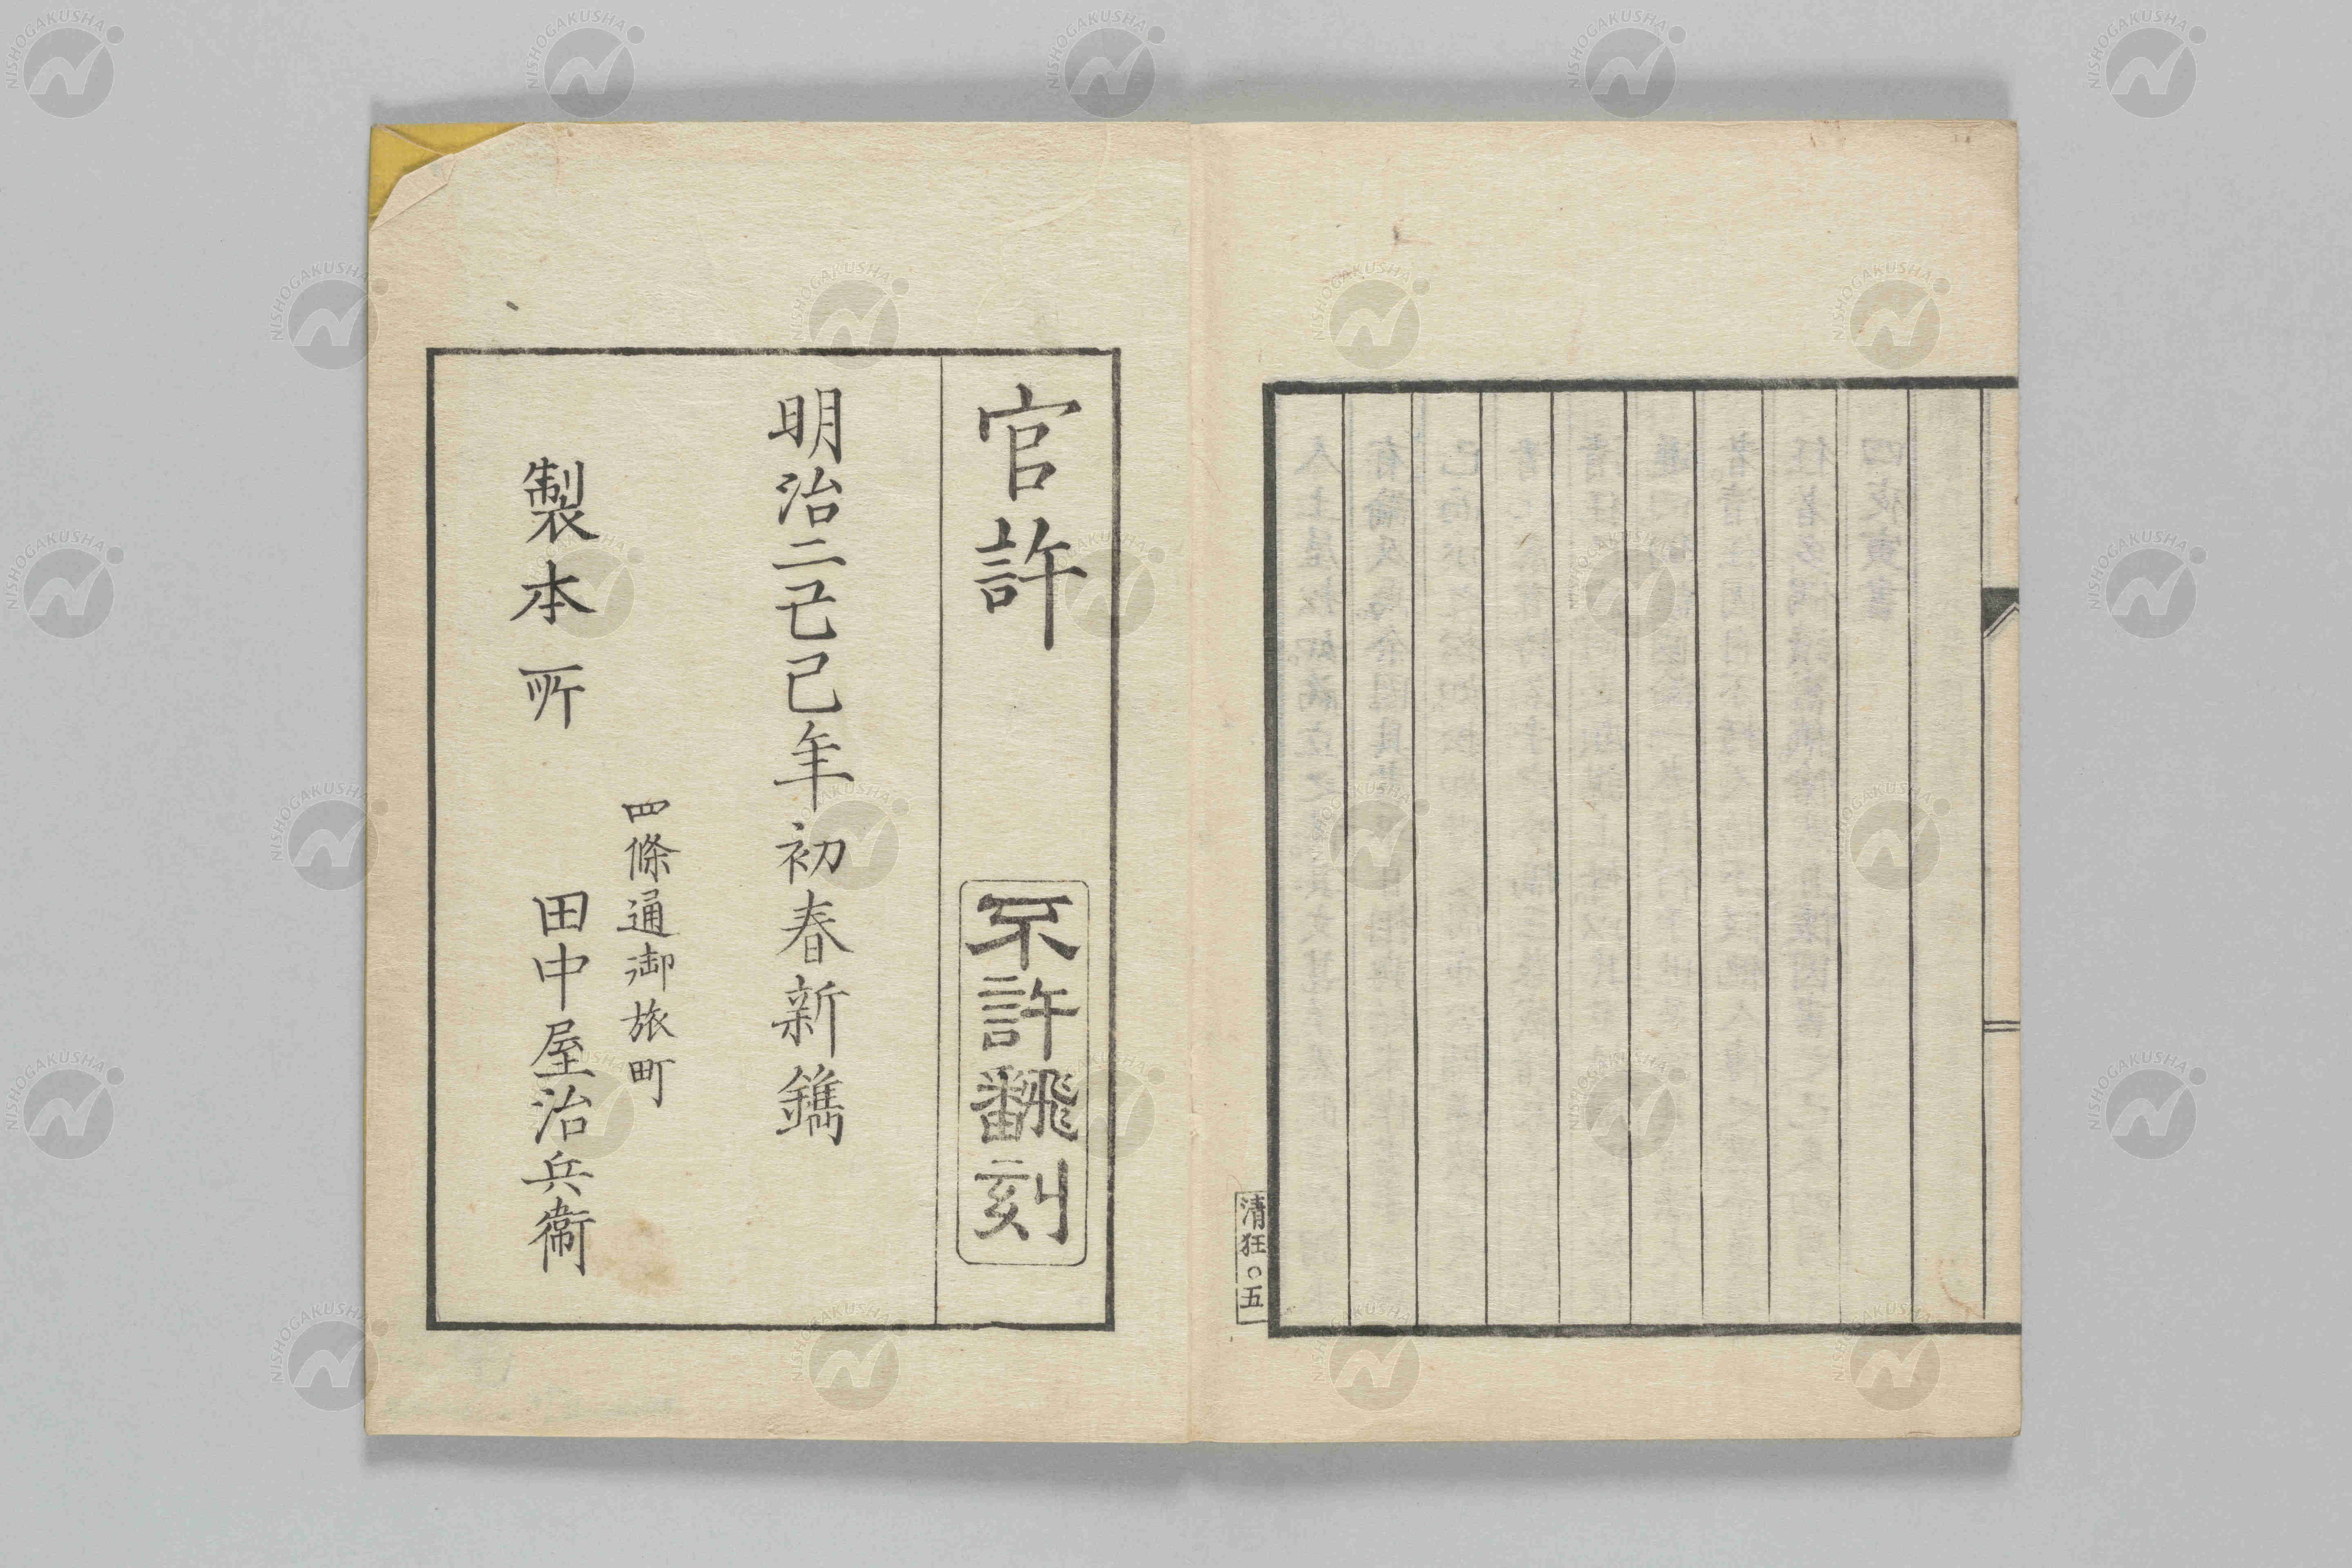 清狂〇五
官許
不許飜刻
明治二己巳年初春新鐫
四條通御旅町
製本所
田中屋治兵衞
NISHOGAKUSHA